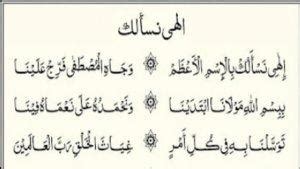 الهي نسألك
اِلٰهِى نَسْأَلُكْ بِالْاِسْمِ الْاَعْظَمِ ۞ وَجَاهِ الْمُصْطَفٰى فَرِّجْ عَلَيْنَا
بِبِسْمِ اللهِ مَوْلَانَا ابْتَدَيْنَا ۞ وَنَحْمَدُهُ عَلٰى نَعْمَاهُ فِيْنَا
تَوَسَّلْنَا بِهِ فِى كُلِّ اَمْرٍ ۞ غِيَاثِ الْخَلْقِ رَبِّ الْعَالَمِيْنَ